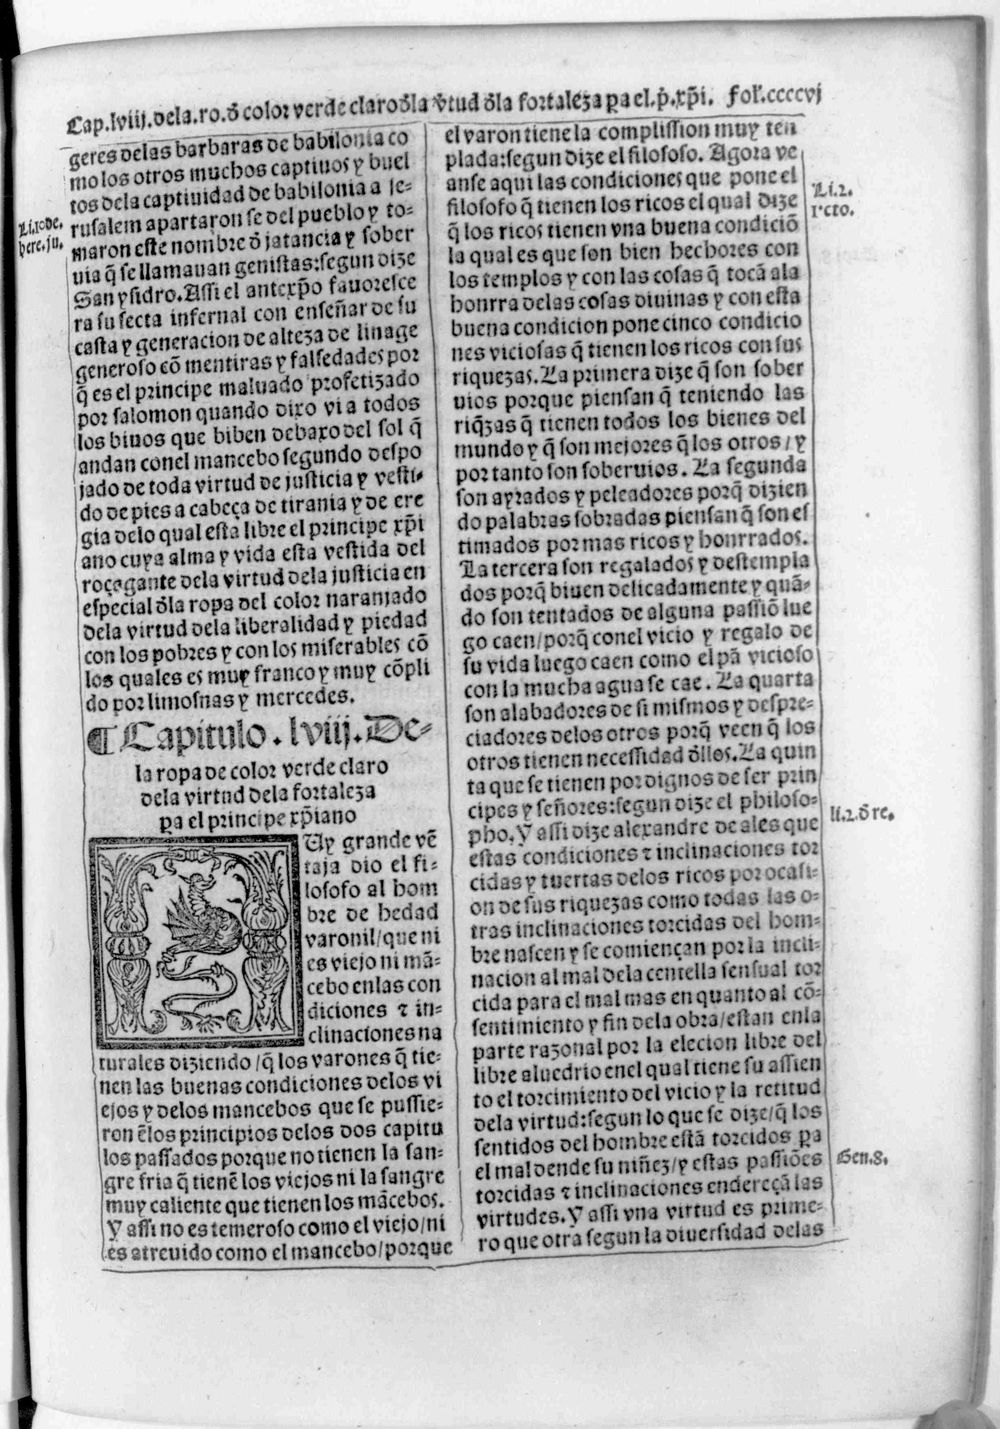 Cap.lviij.dela.ro.đ color verde claro đla v̓tud đla fortaleza pa el.p̓.xp̃i. fol̓.ccccvj
geres delas barbaras de babilonia co
mo los otros muchos captiuos y buel
tos dela captiuidad de babilonia a je-
rusalem apartaron se del pueblo y to-
maron este nombre đ jatancia y sober
uia q̃ se llamauan genistas:segun dize
San ysidro.Assi el antexp̃o fauoresce
ra su secta infernal con enseñar de su
casta y generacion de alteza de linage
generoso cõ mentiras y falsedades por
q̃ es el principe maluado profetizado
por salomon quando dixo vi a todos
los biuos que biben debaxo del sol q̃
andan conel mancebo segundo despo
jado de toda virtud de justicia y vesti-
do de pies a cabeça de tirania y de ere
gia delo qual esta libre el principe xp̃i
ano cuya alma y vida esta vestida del
roçagante dela virtud dela justicia en
especial đla ropa del color naranjado
dela virtud dela liberalidad y piedad
con los pobres y con los miserables cõ
los quales es muy franco y muy cõpli
do por limosnas y mercedes.
¶ Capitulo.lviij.De-
la ropa de color verde claro
dela virtud dela fortaleza
pa el principe xp̃iano
Uy grande vẽ
taja dio el fi-
losofo al hom
bre de hedad
varonil/que ni
es viejo ni mã-
cebo enlas con
diciones ⁊ in-
clinaciones na
turales diziendo/q̃ los varones q̃ tie-
nen las buenas condiciones delos vi
ejos y delos mancebos que se pussie-
ron ẽlos principios delos dos capitu
los passados porque no tienen la san-
gre fria q̃ tienẽ los viejos ni la sangre
muy caliente que tienen los mãcebos.
Y assi no es temeroso como el viejo/ni
es atreuido como el mancebo/porque
Li.10 de.
here.ju.
el varon tiene la complission muy ten
plada:segun dize el filosofo. Agora ve
anse aqui las condiciones que pone el
filosofo q̃ tienen los ricos el qual dize
q̃ los ricos tienen vna buena condiciõ
la qual es que son bien hechores con
los templos y con las cosas q̃ tocã ala
honrra delas cosas diuinas y con esta
buena condicion pone cinco condicio
nes viciosas q̃ tienen los ricos con sus
riquezas.La primera dize q̃ son sober
uios porque piensan q̃ teniendo las
riq̃zas q̃ tienen todos los bienes del
mundo y q̃ son mejores q̃ los otros/y
por tanto son soberuios. La segunda
son ayrados y peleadores porq̃ dizien
do palabras sobradas piensan q̃ son es
timados por mas ricos y honrrados.
La tercera son regalados y destempla
dos porq̃ biuen delicadamente y quã-
do son tentados de alguna passiõ lue
go caen/porq̃ conel vicio y regalo de
su vida luego caen como el pã vicioso
con la mucha agua se cae. La quarta
son alabadores de si mismos y despre-
ciadores delos otros porq̃ veen q̃ los
otros tienen necessidad đllos.La quin
ta que se tienen por dignos de ser prin
cipes y señores:segun dize el philoso-
pho.Y assi dize alexandre de ales que
estas condiciones ⁊ inclinaciones tor
cidas y tuertas delos ricos por ocasi-
on de sus riquezas como todas las o-
tras inclinaciones torcidas del hom-
bre nascen y se comiençan por la incli-
nacion al mal dela centella sensual tor
cida para el mal mas en quanto al cõ-
sentimiento y fin dela obra/estan enla
parte razonal por la elecion libre del
libre aluedrio enel qual tiene su assien
to el torcimiento del vicio y la retitud
dela virtud:segun lo que se dize/q̃ los
sentidos del hombre estã torcidos pa
el mal dende su niñez/y estas passiões
torcidas ⁊ inclinaciones endereçã las
virtudes.Y assi vna virtud es prime-
ro que otra segun la diuersidad delas
Li.2.
rcto.
li.2.đ re.
Gen.8.